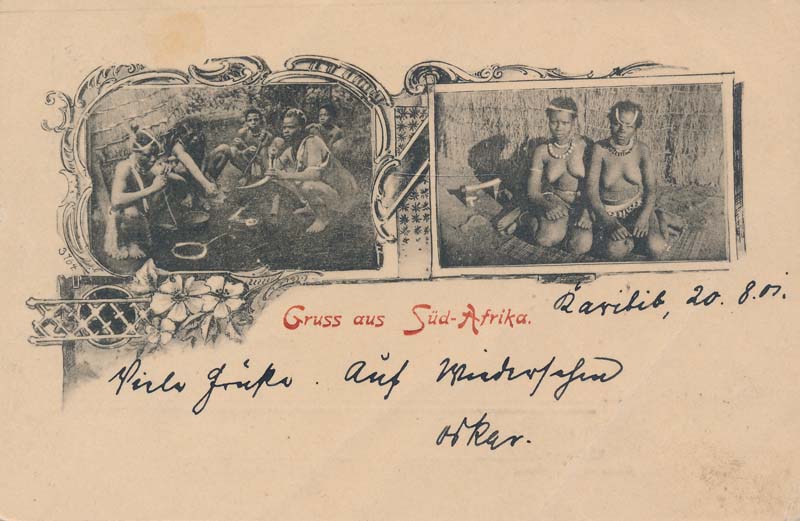 3764
Gruss aus Süd-Afrika.
Karibib, 20. 8. 01.
Viele Grüße. Auf Wiedersehen
Oskar.